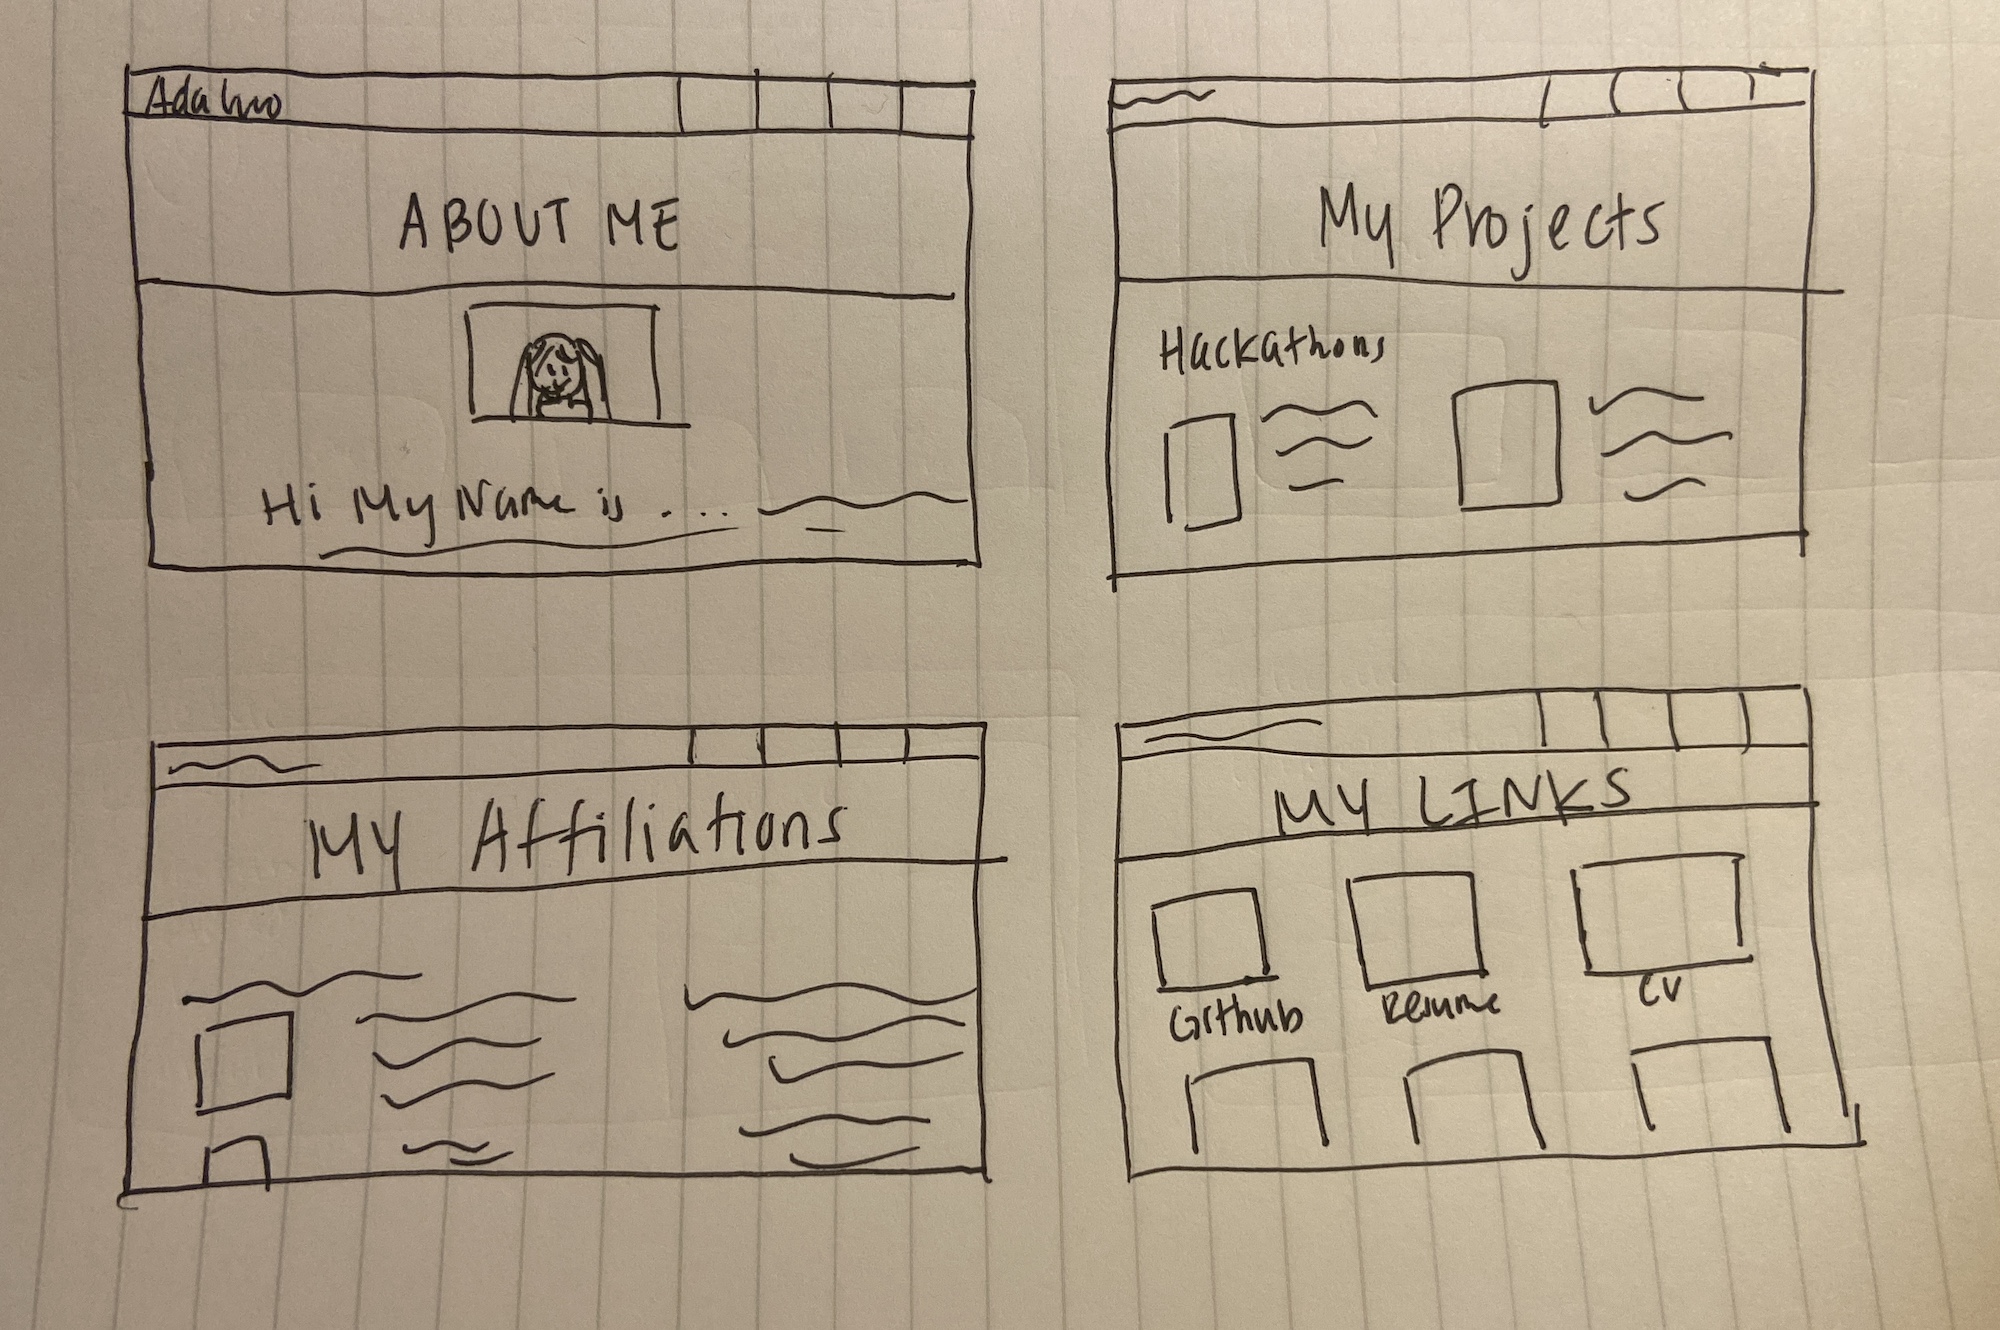 Ada
ABOUT ME
Hi My Name is ....
My Projects
Hackathons
MY Affiliations
MY LINKS
Github
Resume
CV